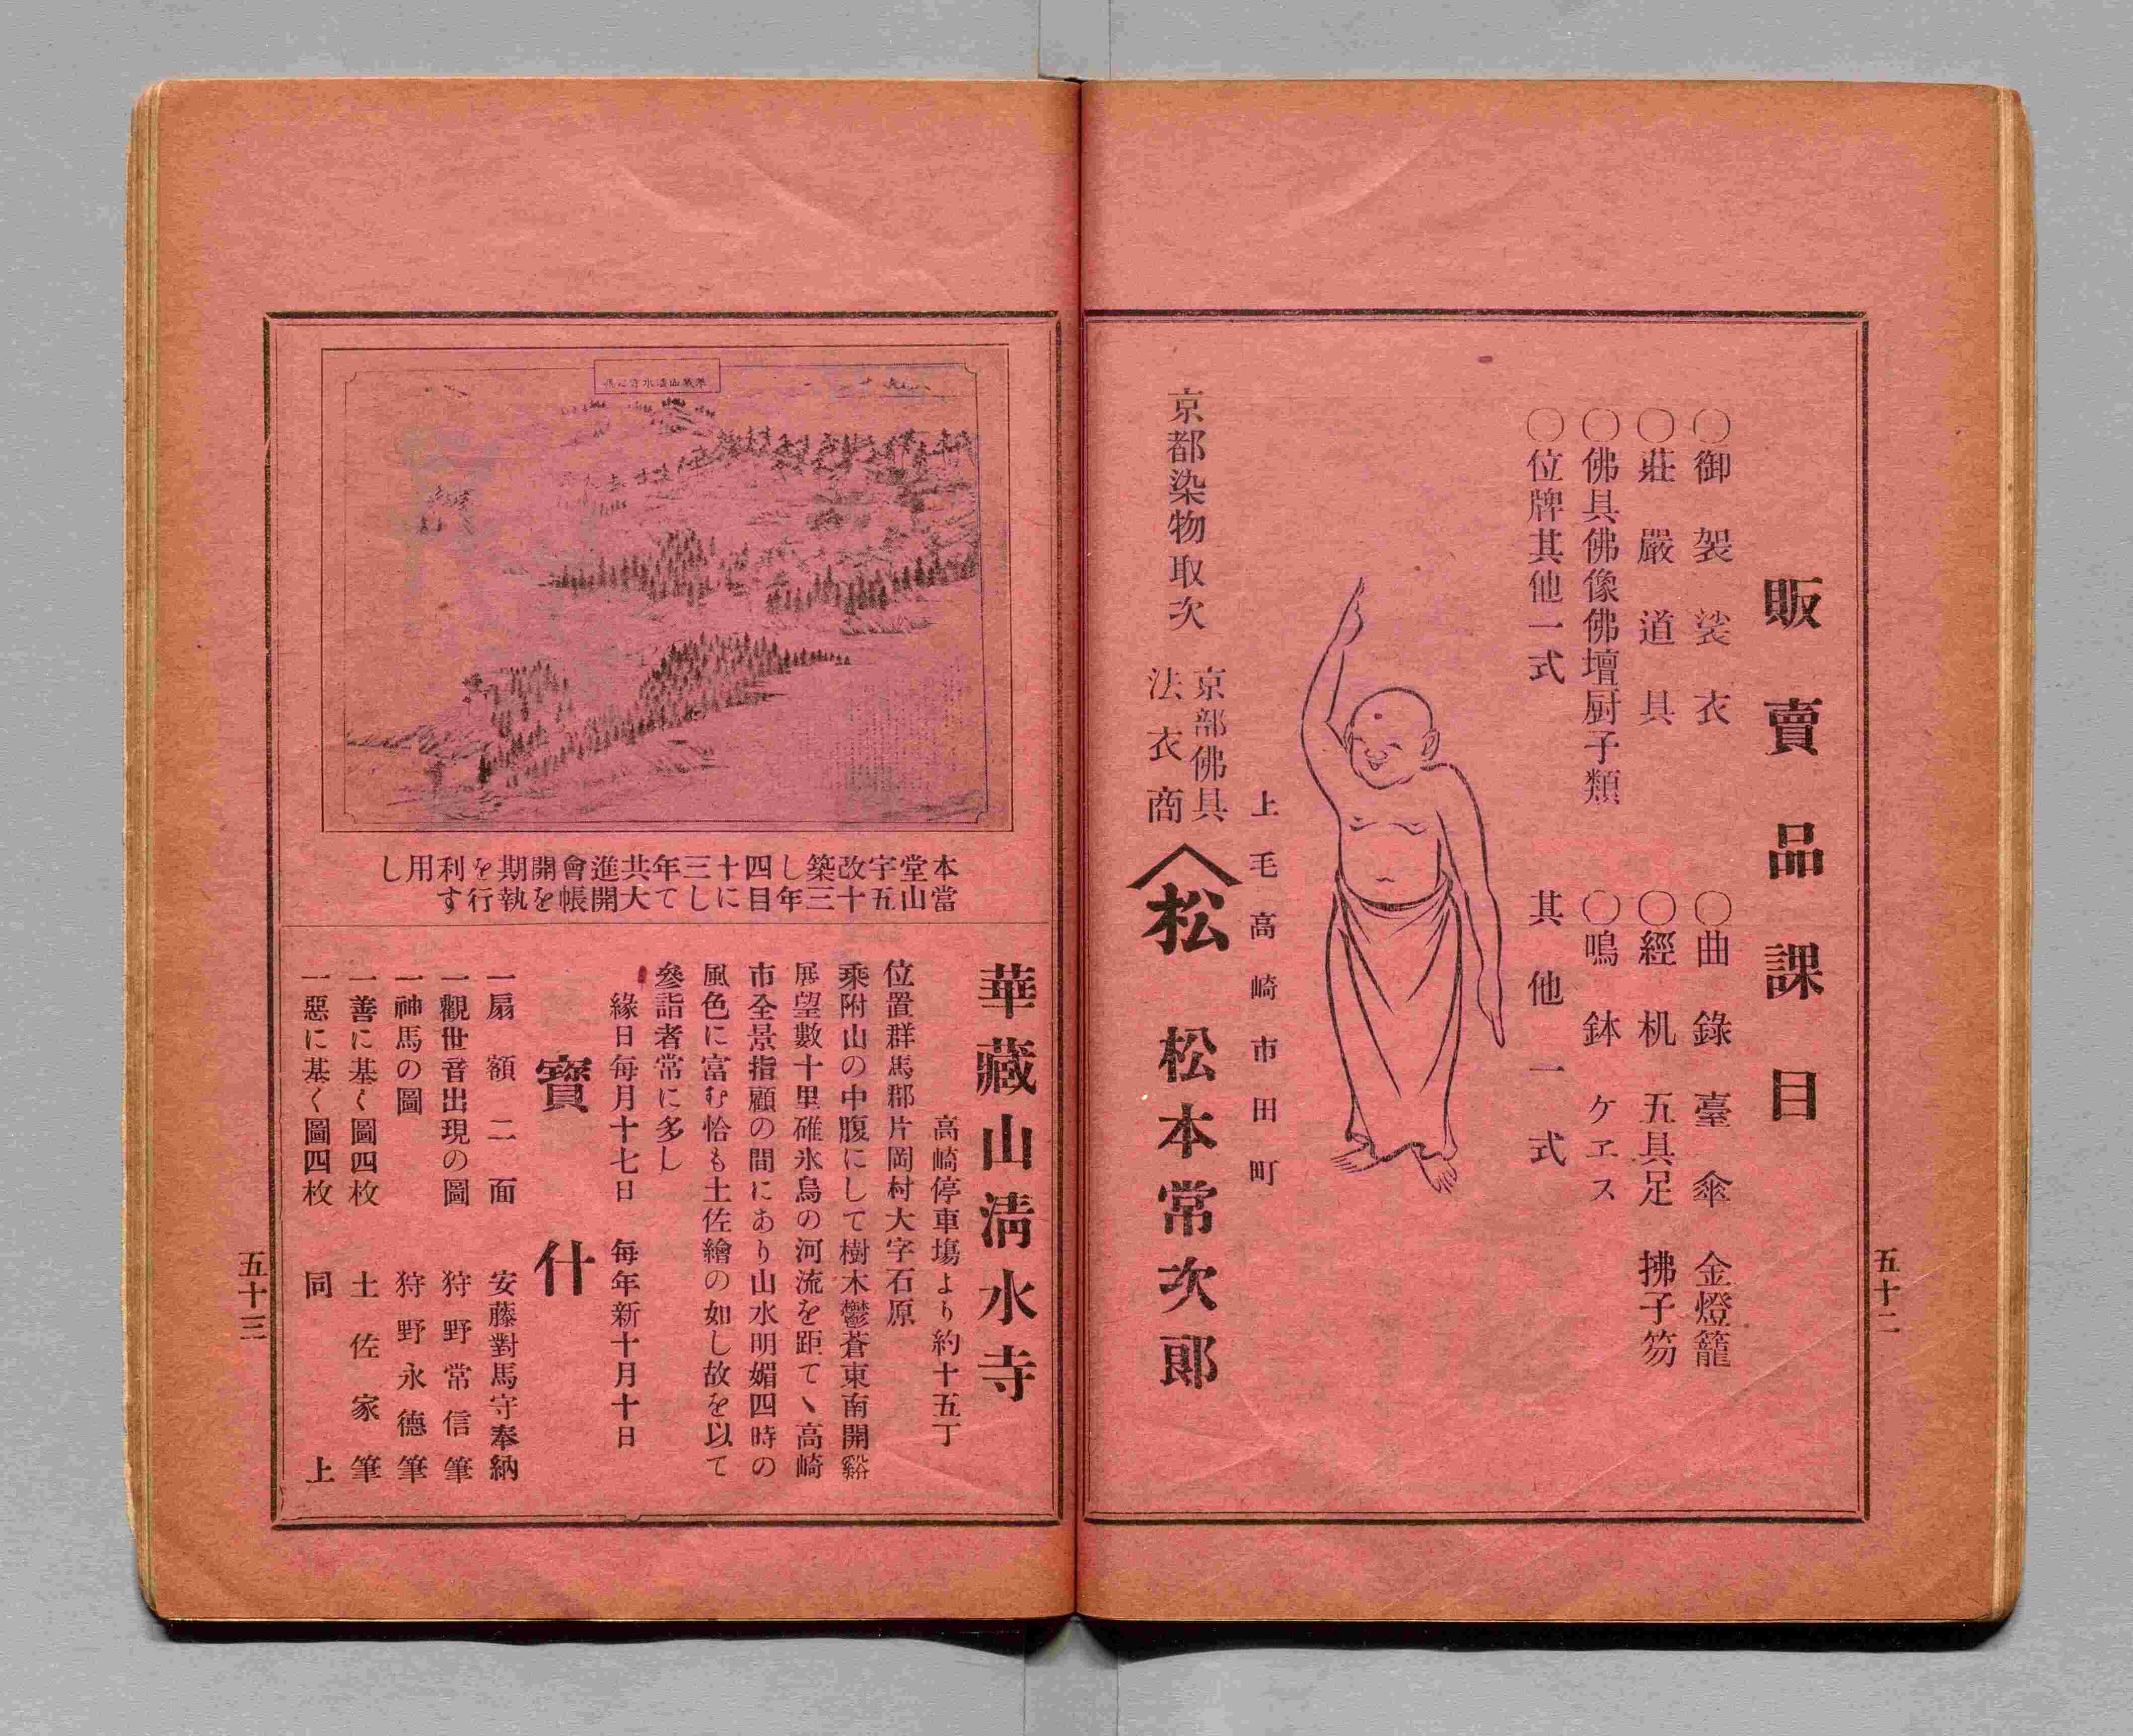 販賣品課目
○御袈裟衣
○莊嚴道具
○佛具佛像佛壇厨子類
○位牌其他一式
○曲錄臺傘 金燈籠
○經机 五具足 拂子笏
○鳴鉢 ケヱス
其他一式
上毛高崎市田町
京部佛具
法衣商
京都染物取次
松 松本常次郎
五十二
華藏山淸水寺之眞
本堂宇改築し四十三年共進會開期を利用し
當山五十三年目にして大開帳を執行す
華藏山淸水寺
高崎停車塲より約十五丁
位置群馬郡片岡村大字石原
乘附山の中腹にして樹木鬱蒼東南開豁
展望數十里碓氷鳥の河流を距てヽ高崎
市全景指顧の間にあり山水明媚四時の
風色に富む恰も土佐繪の如し故を以て
參詣者常に多し
緣日每月十七日 每年新十月十日
寶什
一扇額二面 安藤對馬守奉納
一觀世音出現の圖 狩野常信筆
一神馬の圖 狩野永德筆
一善に基く圖四枚 土佐家筆
一惡に基く圖四枚 同上
五十三